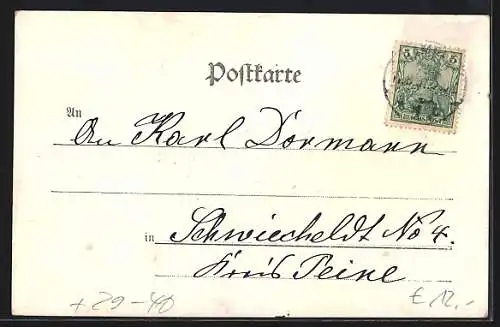 Postkarte
5 5
An
An Karl Dörmann
in Schwiecheldt No 4.
Kreis Peine
+29-40 € 12,-